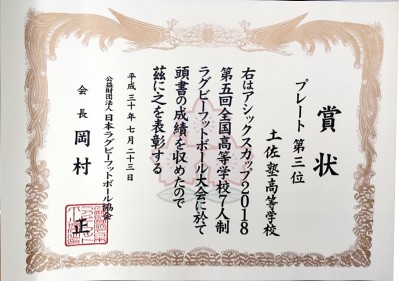 賞状
プレート 第三位
土佐塾高等学校
右はアシックスカップ2018
第五回全国高等学校7人制
ラグビーフットボール大会に於て
頭書の成績を収めたので
茲に之を表彰する
平成三十年七月二十三日
公益財団法人 日本ラグビーフットボール協会
会長 岡村 正